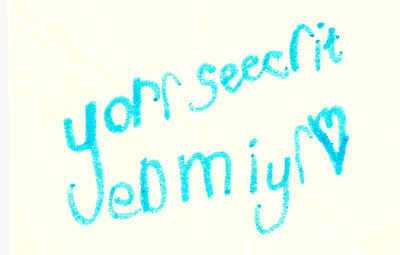 yorr seecrit
eDmiyr♥